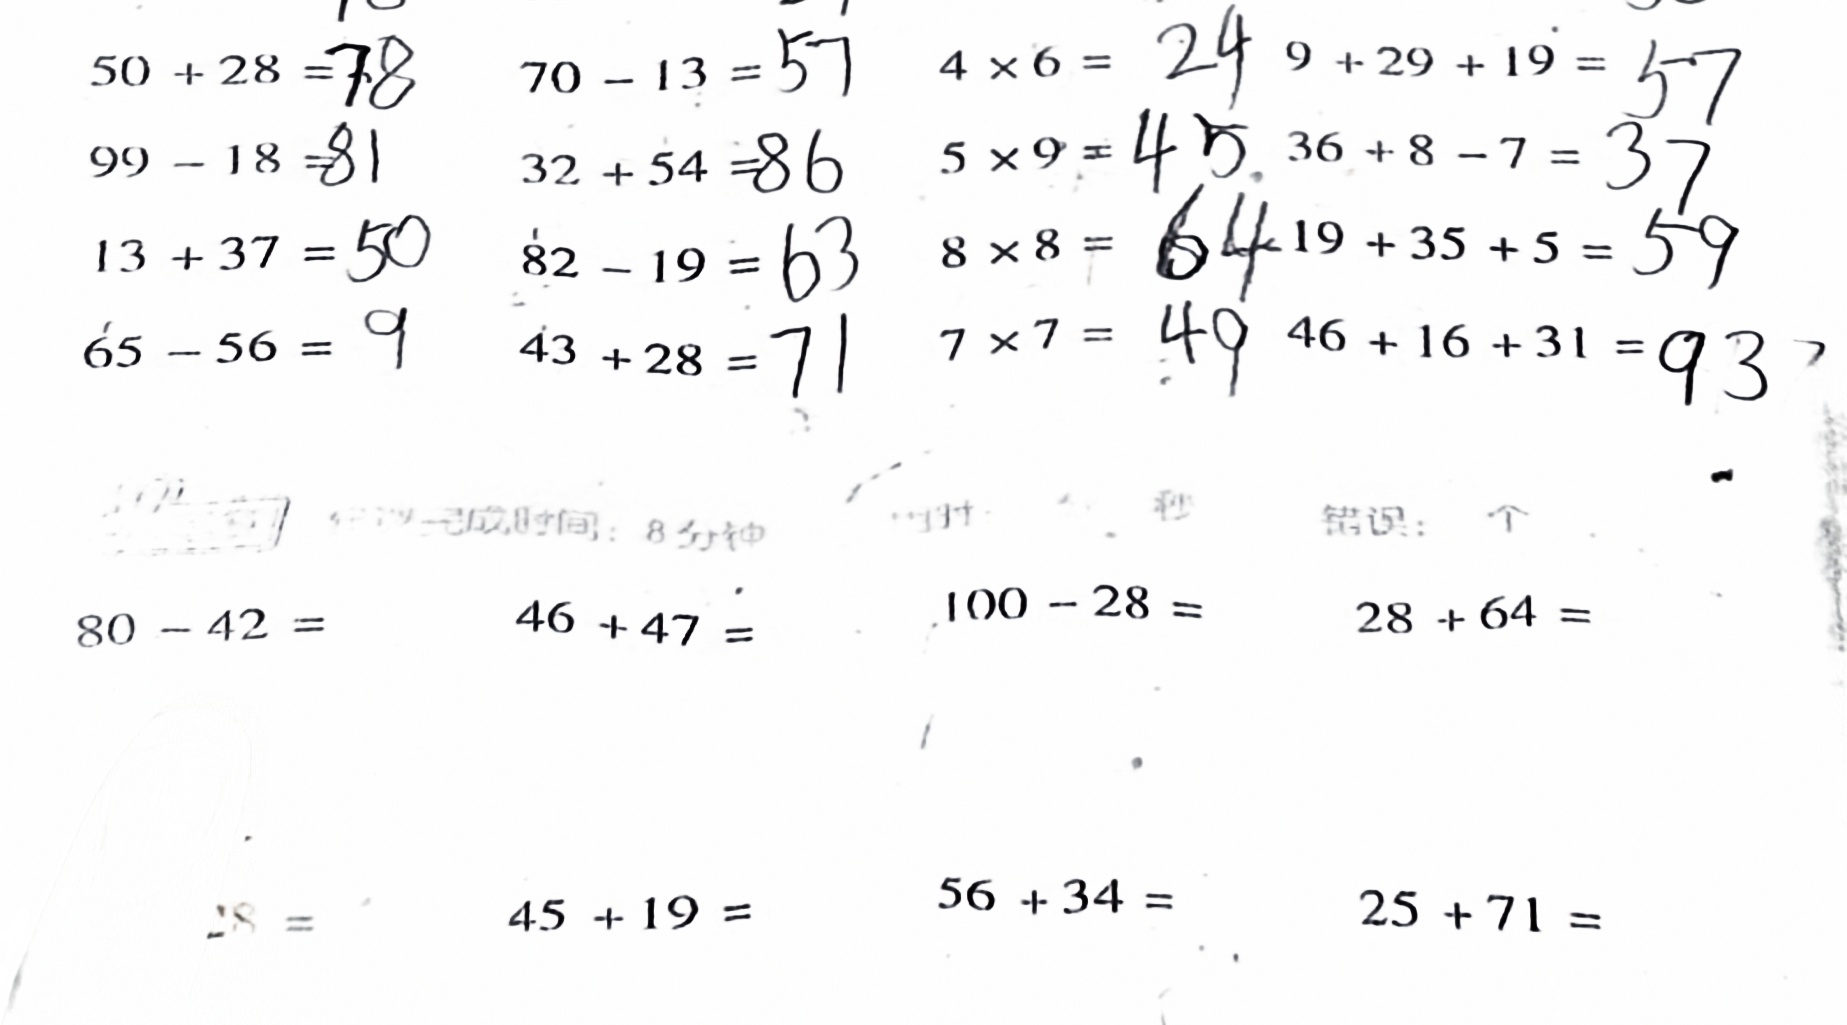 50 + 28 = 78 70 - 13 = 57 4 × 6 = 24 9 + 29 + 19 = 57
99 - 18 = 81 32 + 54 = 86 5 × 9 = 45 36 + 8 - 7 = 37
13 + 37 = 50 82 - 19 = 63 8 × 8 = 64 19 + 35 + 5 = 59
65 - 56 = 9 43 + 28 = 71 7 × 7 = 49 46 + 16 + 31 = 93
完成时间: 8分钟 秒 错误: 个
80 - 42 = 46 + 47 = 100 - 28 = 28 + 64 =
8 = 45 + 19 = 56 + 34 = 25 + 71 =